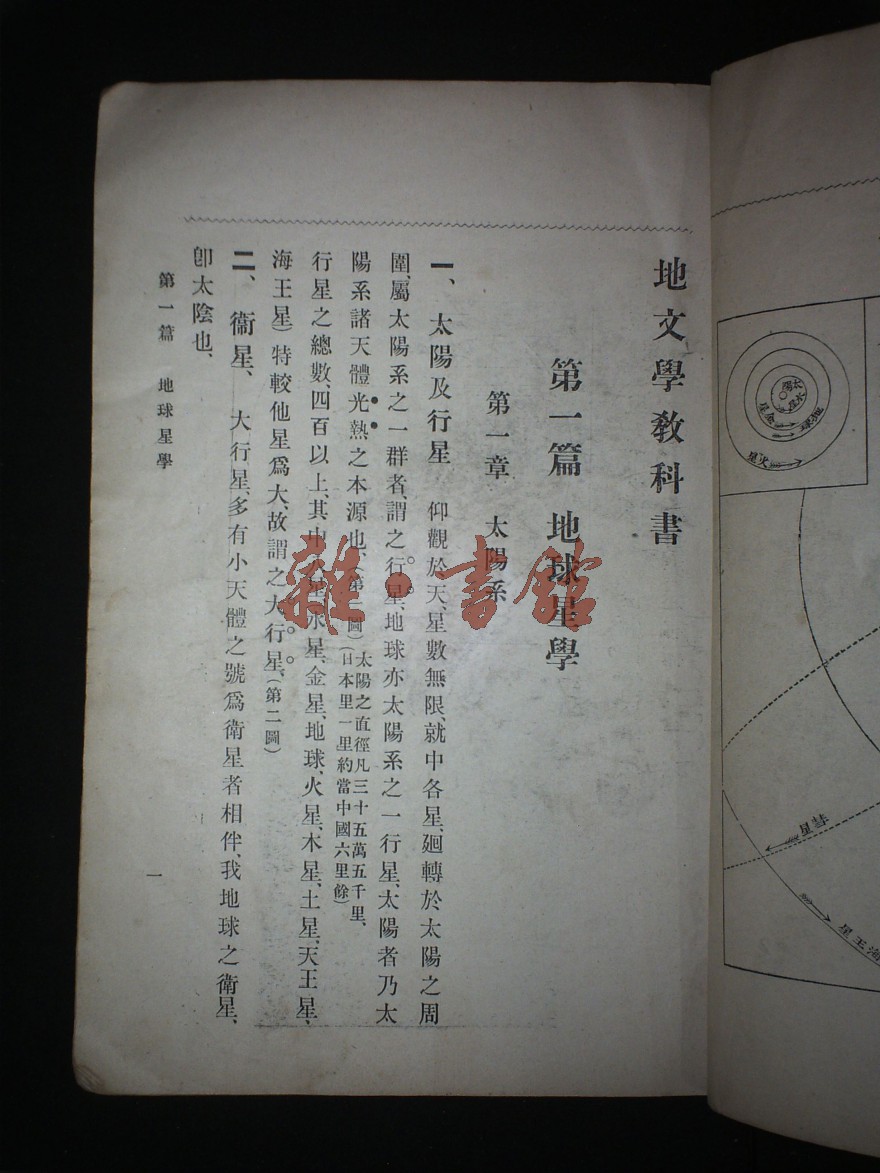 地文學敎科書
第一篇 地球星學
第一章 太陽系
一、太陽及行星 仰觀於天、星數無限、就中各星、廻轉於太陽之周
圍、屬太陽系之一群者、謂之行星、地球亦太陽系之一行星、太陽者乃太
陽系諸天體光熱之本源也、(第一圖)(太陽之直徑凡三十五萬五千里、
日本里一里約當中國六里餘)
行星之總數、四百以上、其中八星、水星、金星、地球、火星、木星、土星、天王星、
海王星)特較他星爲大、故謂之大行星、(第二圖)
二、衞星、 大行星、多有小天體之號爲衞星者相伴、我地球之衞星、
卽太陰也、
第一篇 地球星學
一
雜·書館
太陽
水星
金星
地球
火星
彗星
海王星